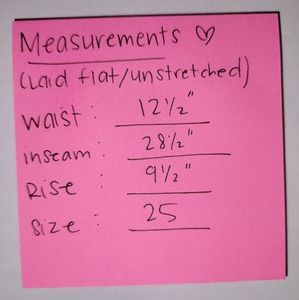 Measurements ♡
(Laid flat/unstretched)
waist : 12½"
inseam : 28½"
Rise : 9½"
Size : 25